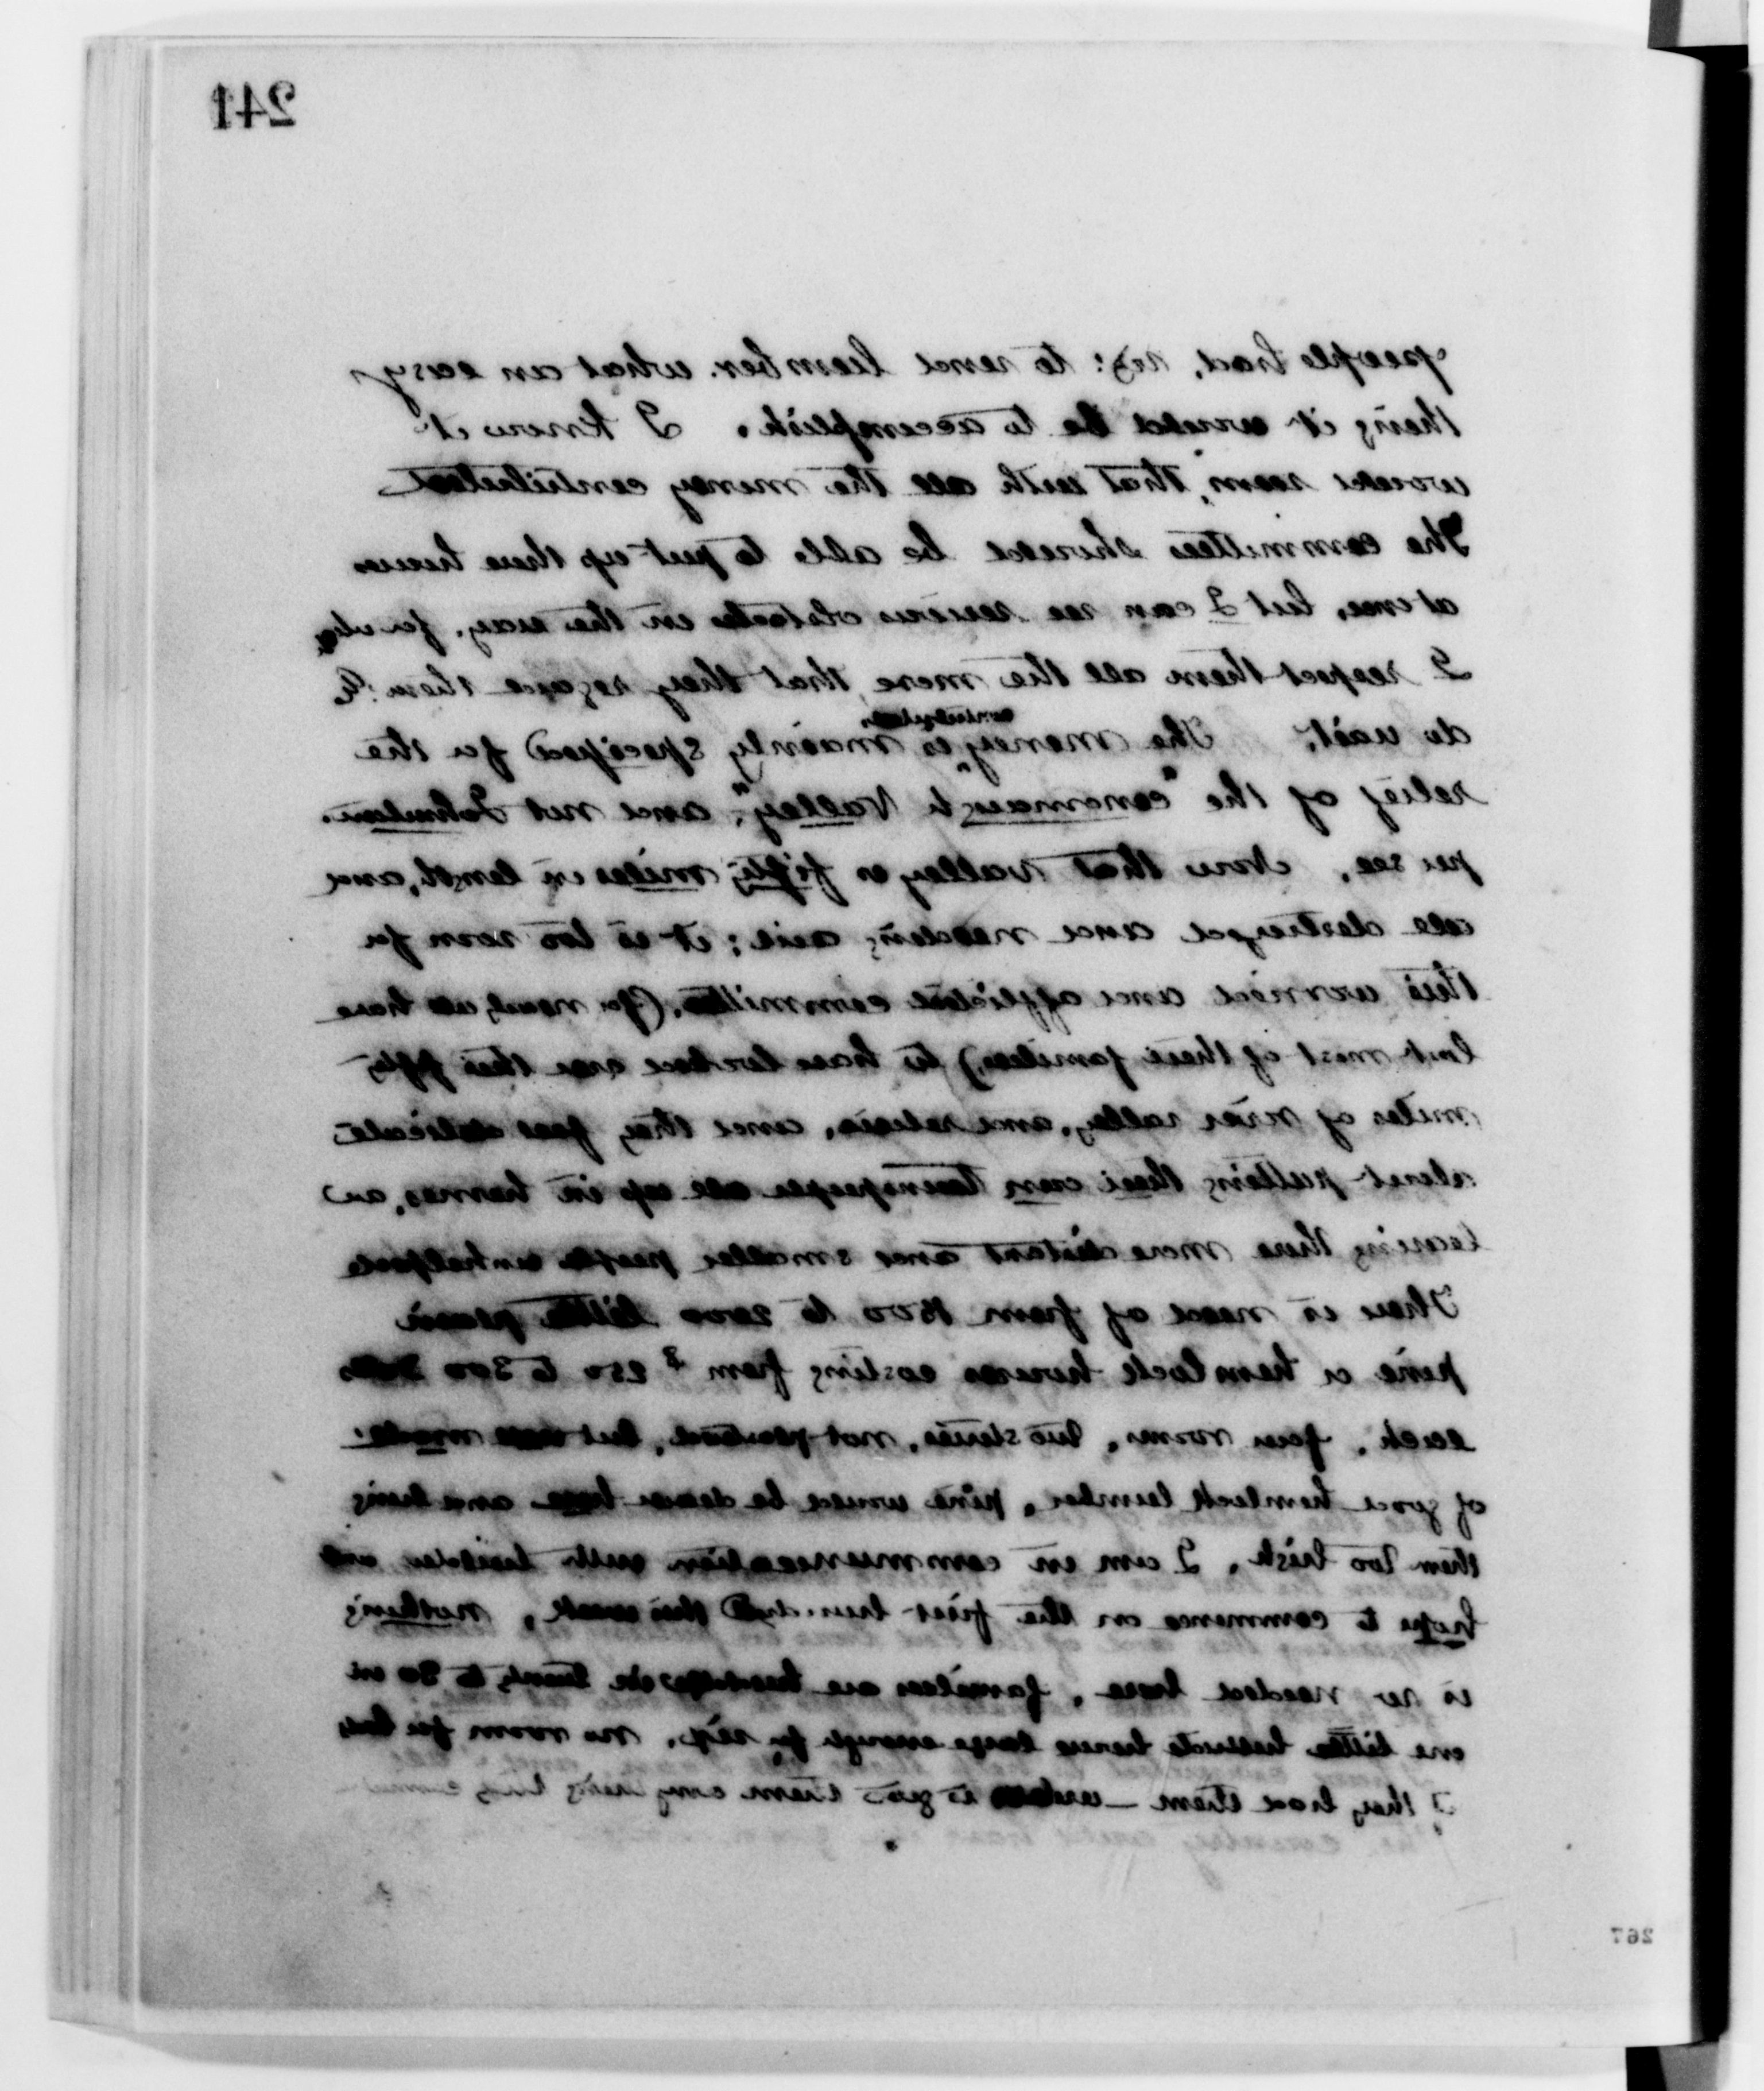 241
people had, viz: to send lumber. what an easy
thing it would be to accomplish. I know it
would seem, that with all the money contributed
The committees should be able to put up these houses
at once, but I can see serious obstacles in the way, for which
I respect them all the more that they regard them &
do wait. The money contributed is mainly specified for the
relief of the "conemaugh Valley", and not Johnstown.
you see, Now that valley is fifty miles in length, and
all destroyed and needing aid; it is too soon for
this worried and afflicted committee, (for nearly all have
lost most of their families) to have looked over this fifty
miles of river valley, and relieve, and they feel delicate
about putting their own townspeople all up in homes, and
leaving these more distant and smaller people unhelped
There is need of from 1500 to 2000 little plain
pine or hemlock houses costing from $250 to 300
each, four rooms, two stories, not plastered, but well made
of good hemlock lumber, pine would be dear here and bring
them too high, I am in communication with builders and
hope to commence on the first hundred this week, nothing
is so needed here, families are huddled in twenty to 30 in
one little hillside house large enough for six, no room for beds
if they had them — unless to give them anything they cannot
267